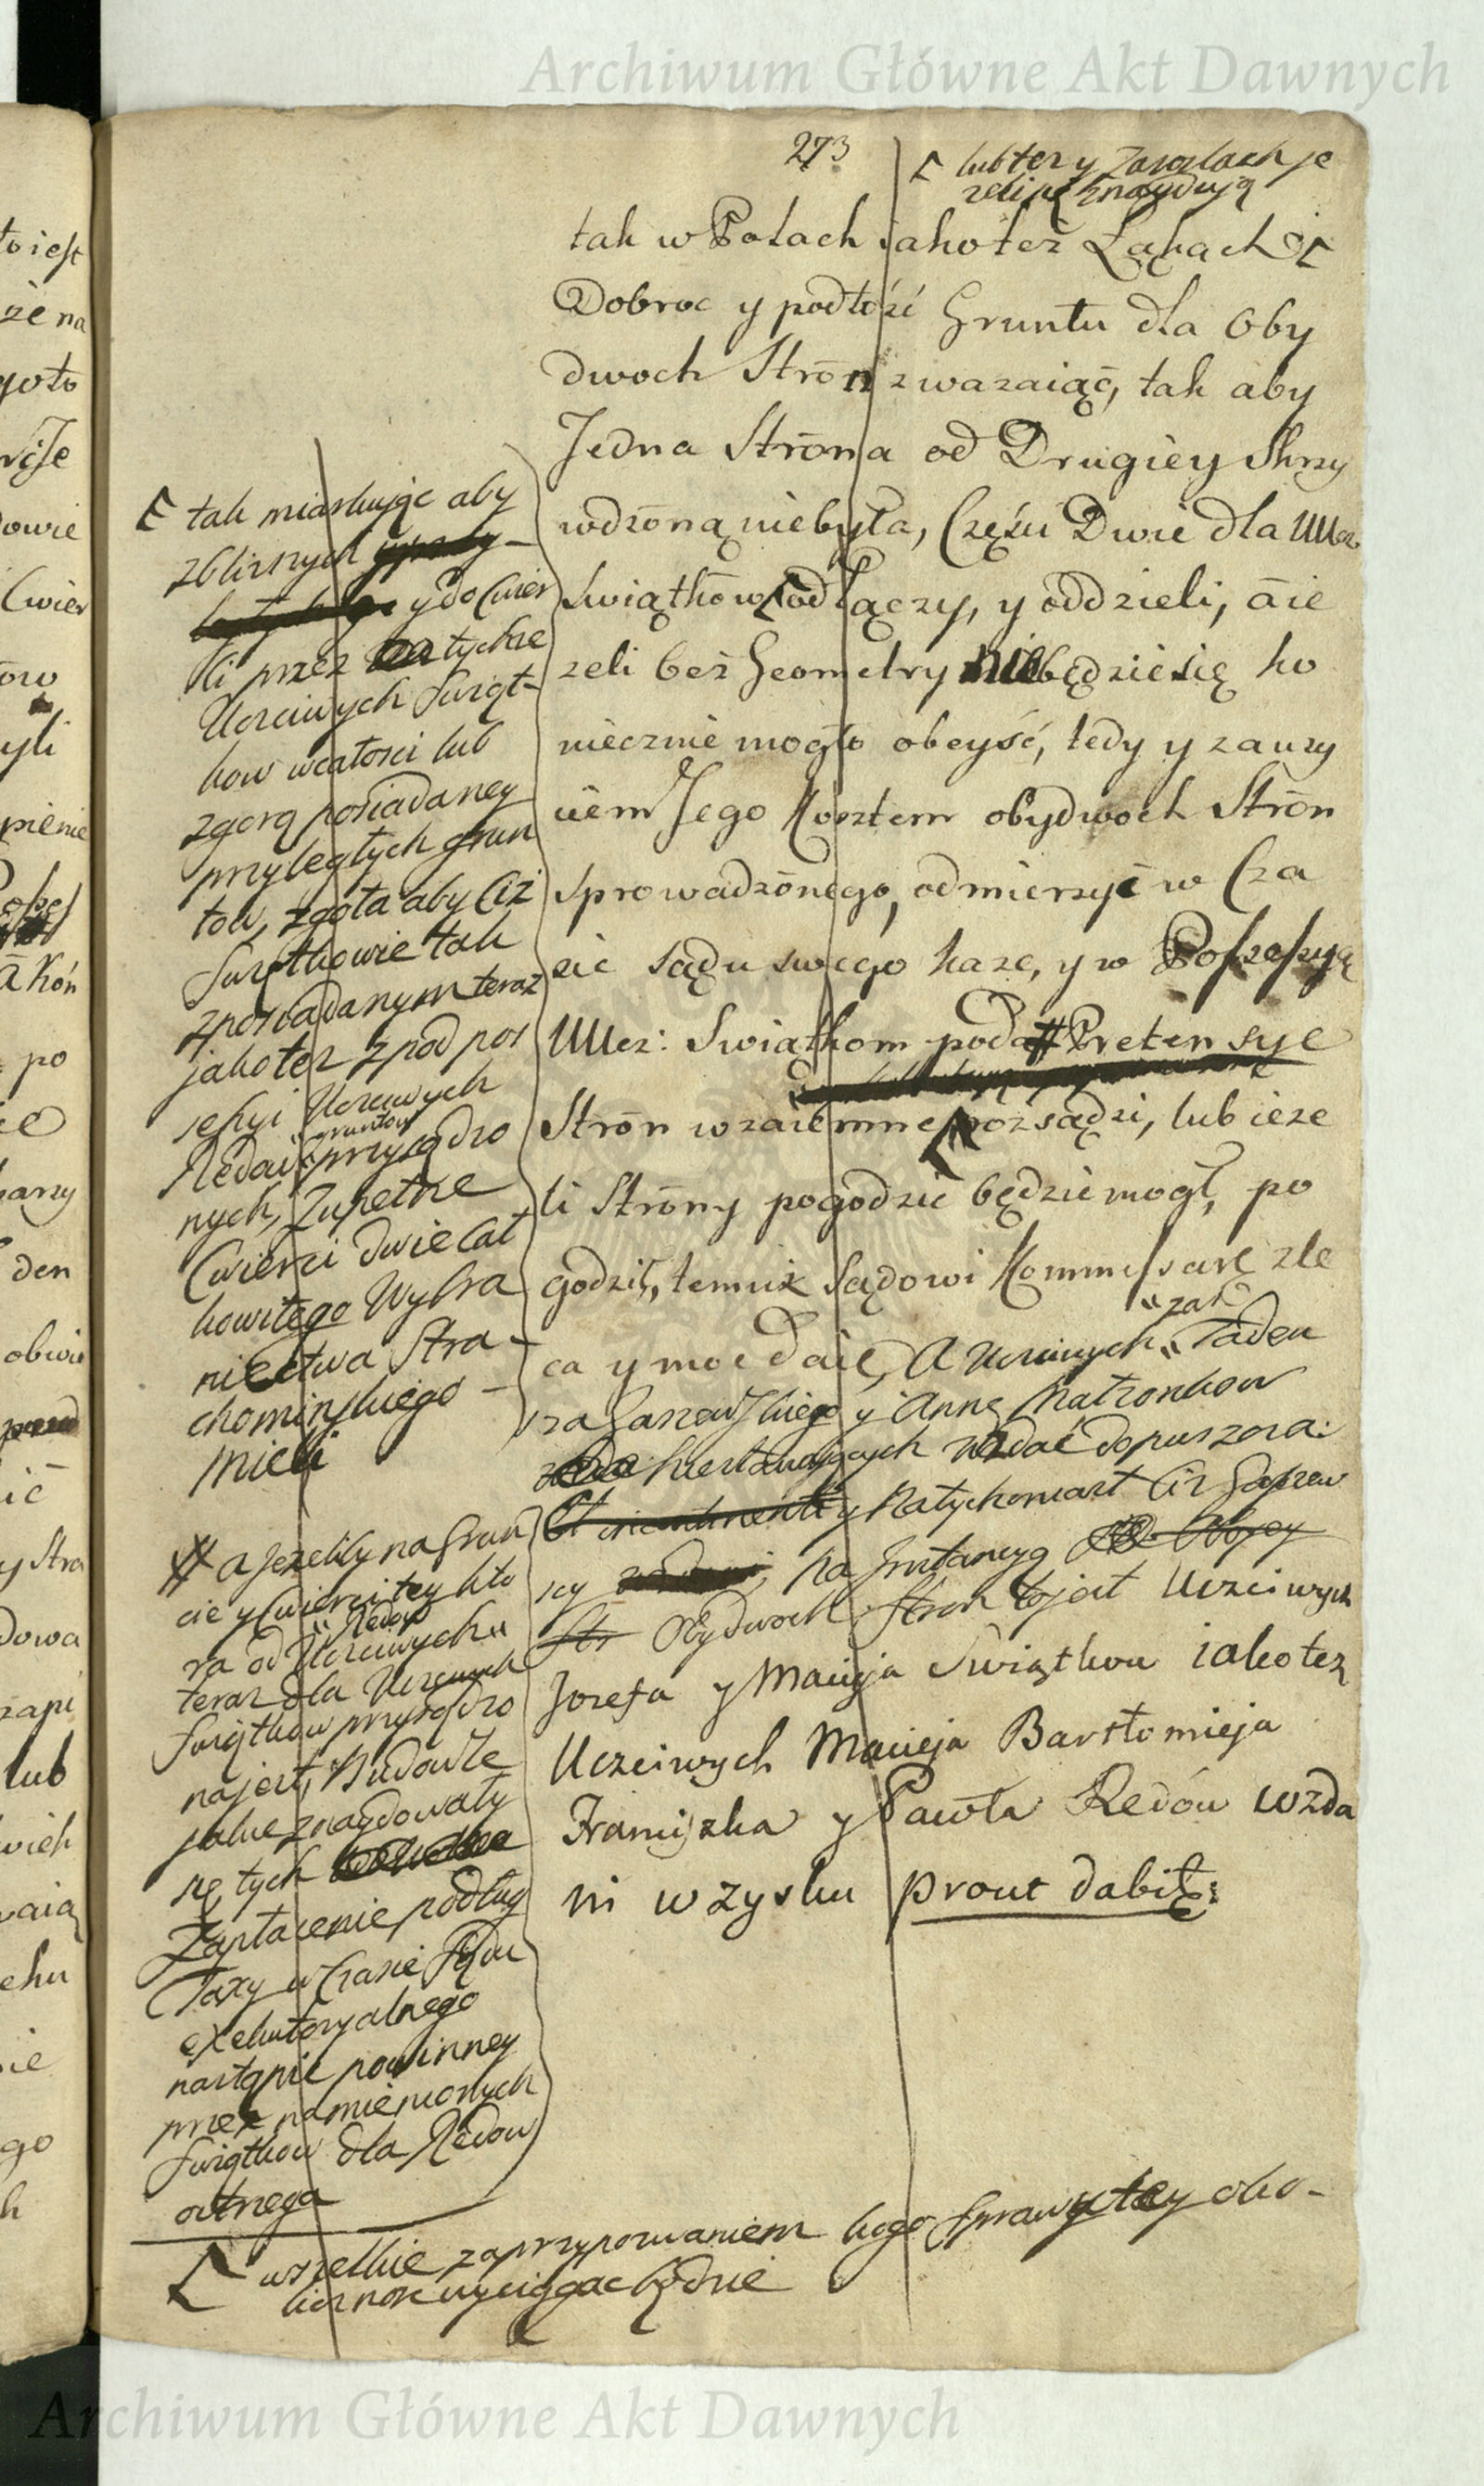 Archiwum Główne Akt Dawnych
273
lub też y Zaroslach je
zeli się znaydują
tak w Polach iako też Łąkach
Dobroc y podłość Gruntu dla Oby
dwoch Strōn zwazaiąc, tak aby
Jedna Strōna od Drugiey Skrzy
wdzōną niebyła, Częsci Dwie dla UUcz
Swiątkōw odłączy, y oddzieli, a ie
zeli bez Geometry niebędzie się ko
niecznie mogło obeyść, tedy y zauzy
ciem Jego Kosztem obydwoch Strōn
sprowadzōnego, odmierzyć w Cza
sie sądu swego kaze, y w Possessyą
UUcz: Swiątkom poda # Pretensye
Strōn wzaiemne rozsądzi, lub ieze
li Strōny pogodzic będzie mogł, po
godzi, temuż Sądowi Kommissarz zle
ca y moc daie, A Uczciwych Tadeu
sza y Annę Małzonkow
niestawaiących wzdać dopuszcza:
y Natychmiast Ciż
scy na Instancyą
Obydwoch Stron to jest Uczciwych
Jozefa y Macieja Swiątkow iako też
Uczciwych Macieja Bartłomieja
Franciszka y Pawła Redów wzda
ni w zysku prout dabit:
tak miarkując aby
zblisnych
y do Cwier
ci przez tychże
Uczciwych Swiąt-
kow w całosci lub
zgorą posiadaney
przyległych grun
tow, zgoła aby Ciż
Swiątkowie tak
z posiadanym teraz
jako też z pod pos
sessyi Uczciwych
gruntow
Redow przysądzo
nych, Zupełne
Cwierci dwie Cał
kowitego Wybra
niectwa Stra-
chominskiego-
mieli
# a jezeliby na Grun
cie y Cwierci tey kto
Redow
ra od Uczciwych
teraz dla Uczciwych
Swiątkow przysądzo
na jest, Budowle
jakie znaydowały
się, tych
Zapłacenie podług
Taxy w Czasie Sądu
exekutoryalnego
nastąpić powinney
przez namienionych
Swiątkow dla Redow
ostrzega
wszelkie zaprzypozwaniem kogo Sprawy tey oko-
licznosc wyciągac będzie
Archiwum Główne Akt Dawnych